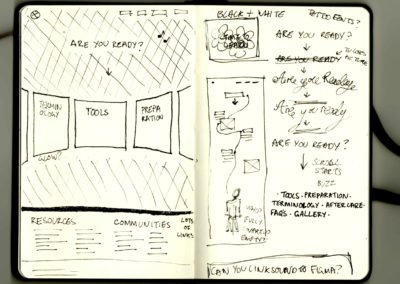 ARE YOU READY?
TERMIN
OLOGY
TOOLS
PREPA
RATION
GLOW?
RESOURCES
COMMUNITIES
LOTS
OF
LINKS
BLACK + WHITE
TATTOO FONTS?
ARE YOU READY?
ARE YOU READY
Are you Ready
Are you ready
ARE YOU READY?
SCROLL
STARTS
BUZZ
· TOOLS · PREPARATION ·
TERMINOLOGY · AFTERCARE ·
FAQS · GALLERY ·
CAN YOU LINK SOUND TO FIGMA?